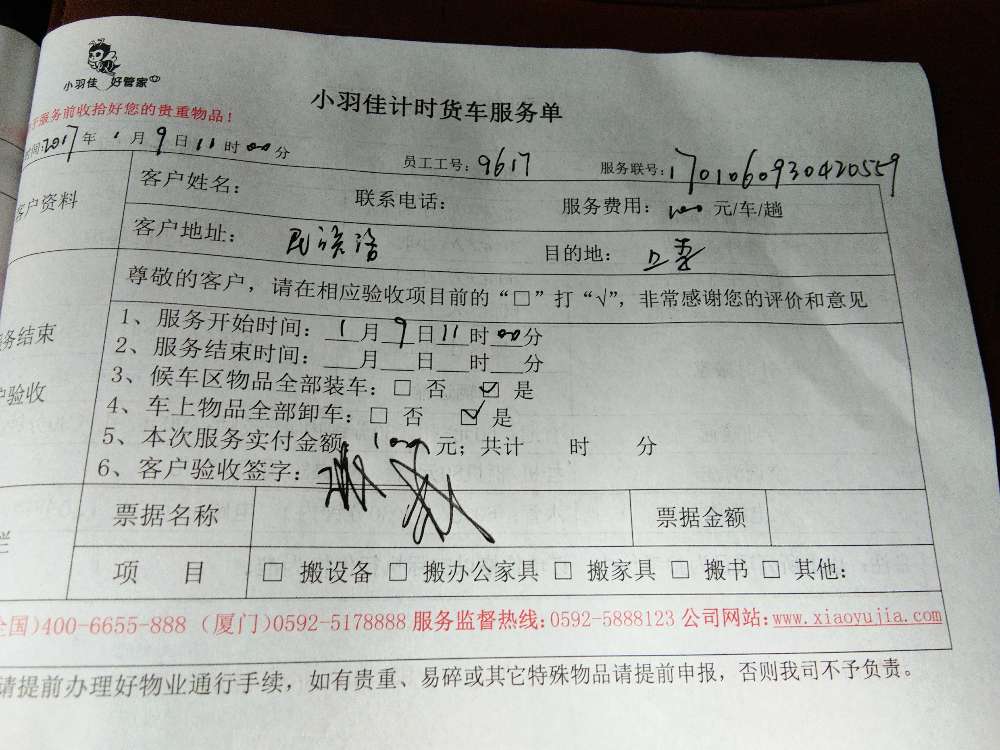 小羽佳 好管家
小羽佳计时货车服务单
服务前收拾好您的贵重物品!
间:2017年1月9日11时00分 员工工号:9617 服务联号:1701060930420559
客户资料
客户姓名: 联系电话: 服务费用:100元/车/趟
客户地址:民族路 目的地:
尊敬的客户,请在相应验收项目前的“□”打“√”,非常感谢您的评价和意见
务结束
户验收
1、服务开始时间:1月9日11时00分
2、服务结束时间:__月__日__时__分
3、候车区物品全部装车:□ 否 ☑ 是
4、车上物品全部卸车:□ 否 ☑ 是
5、本次服务实付金额 100元;共计 时 分
6、客户验收签字:
栏
票据名称 票据金额
项 目 □ 搬设备 □ 搬办公家具 □ 搬家具 □ 搬书 □ 其他:
全国)400-6655-888 (厦门)0592-5178888 服务监督热线:0592-5888123 公司网站:www.xiaoyujia.com
请提前办理好物业通行手续,如有贵重、易碎或其它特殊物品请提前申报,否则我司不予负责。